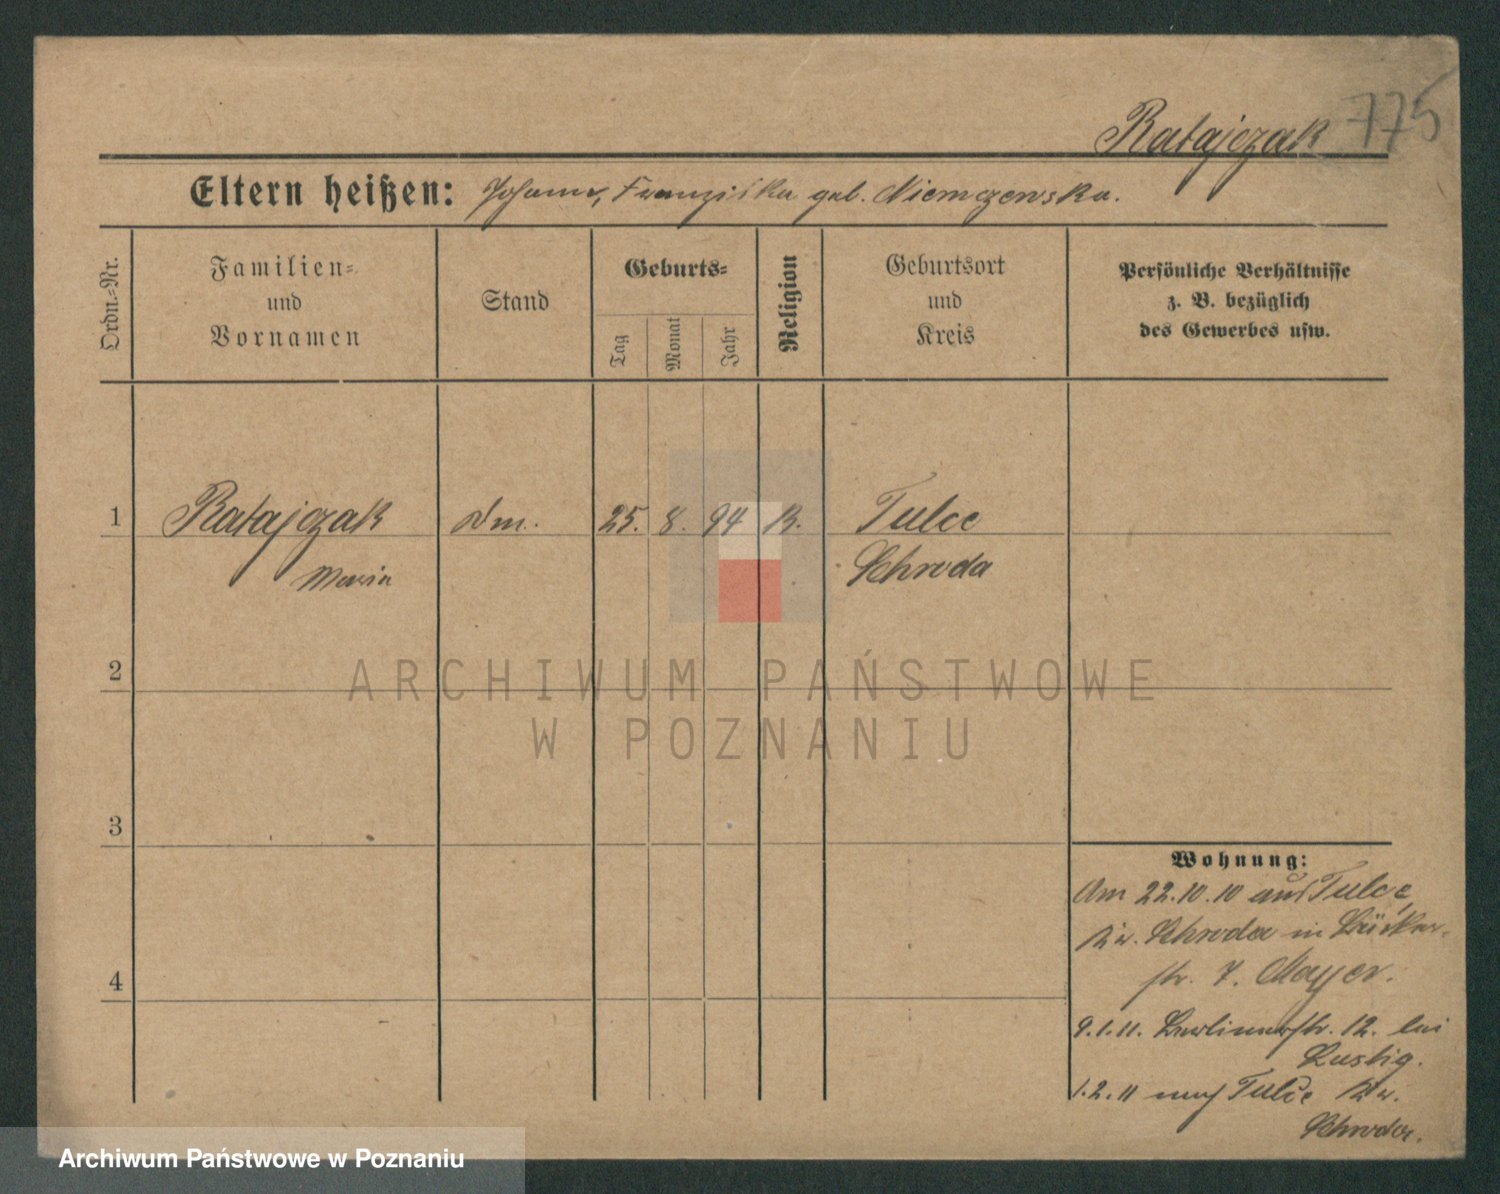 Ratajczak 775
Eltern heißen: Johann, Franziska geb. Niemczewska.
Ordn.-Nr.
Familien-
und
Vornamen
Stand
Geburts-
Tag
Monat
Jahr
Religion
Geburtsort
und
Kreis
Persönliche Verhältnisse
z. B. bezüglich
des Gewerbes usw.
1 Ratajczak 25. 8. 94 K. Tulce
Maria Schroda
2
ARCHIWUM PAŃSTWOWE
W POZNANIU
3
4
Wohnung:
Am 22.10.10 aus Tulce,
Kr. Schroda in
str. 7. Mayer.
9.1.11. Berlinerstr. 12. bei
Lustig.
1.2.11 nach Tulce Kr.
Schroda.
Archiwum Państwowe w Poznaniu